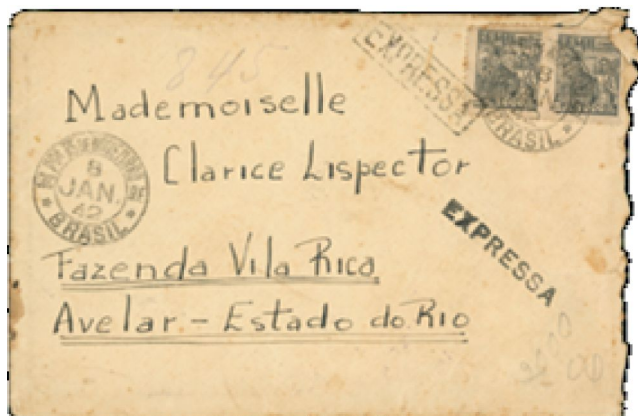 845
EXPRESSA
BRASIL
Mademoiselle
Clarice Lispector
8
JAN.
42
BRASIL
EXPRESSA
Fazenda Vila Rica,
Avelar - Estado do Rio